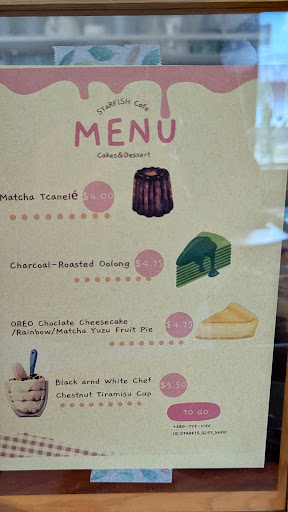 STaRFISH Cafe
MENU
Cakes&Dessert
Matcha Tcanelé $4.00
Charcoal-Roasted Oolong $4.75
OREO Choclate Cheesecake $4.75
/Rainbow/Matcha Yuzu Fruit Pie
Black arnd White Chef $5.50
Chestnut Tiramisu Cup
TO GO